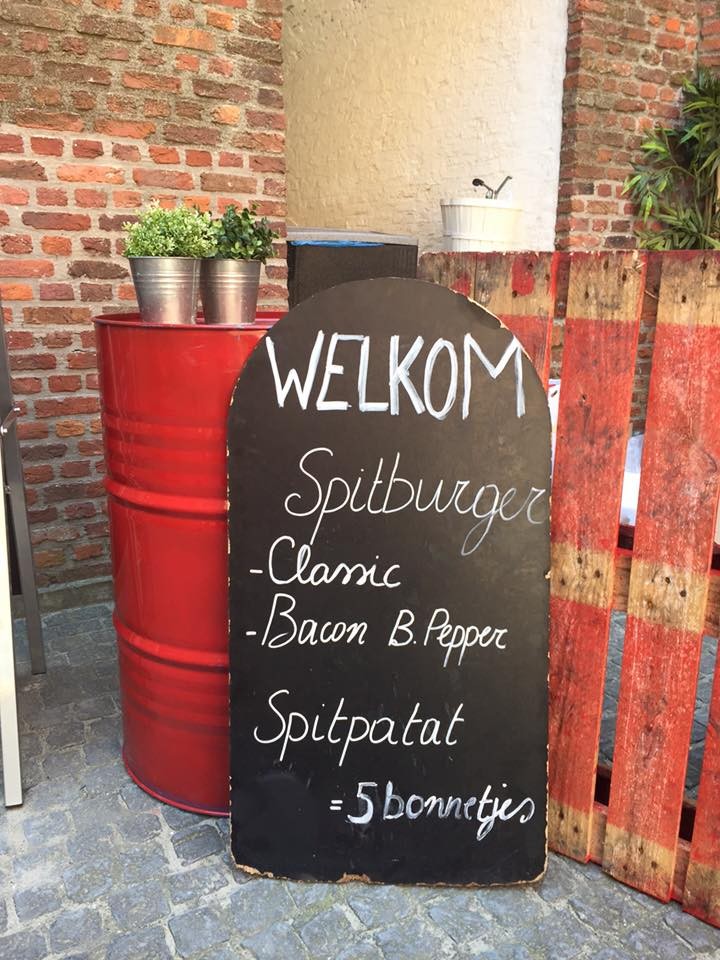 WELKOM
Spitburger
-Classic
-Bacon B. Pepper
Spitpatat
= 5 bonnetjes